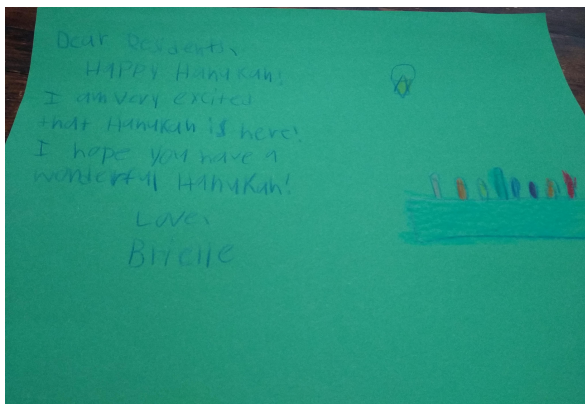 Dear Residents,
HAPPY Hanukah!
I am very excited
that Hanukah is here!
I hope you have a
wonderful Hanukah!
Love,
Brielle